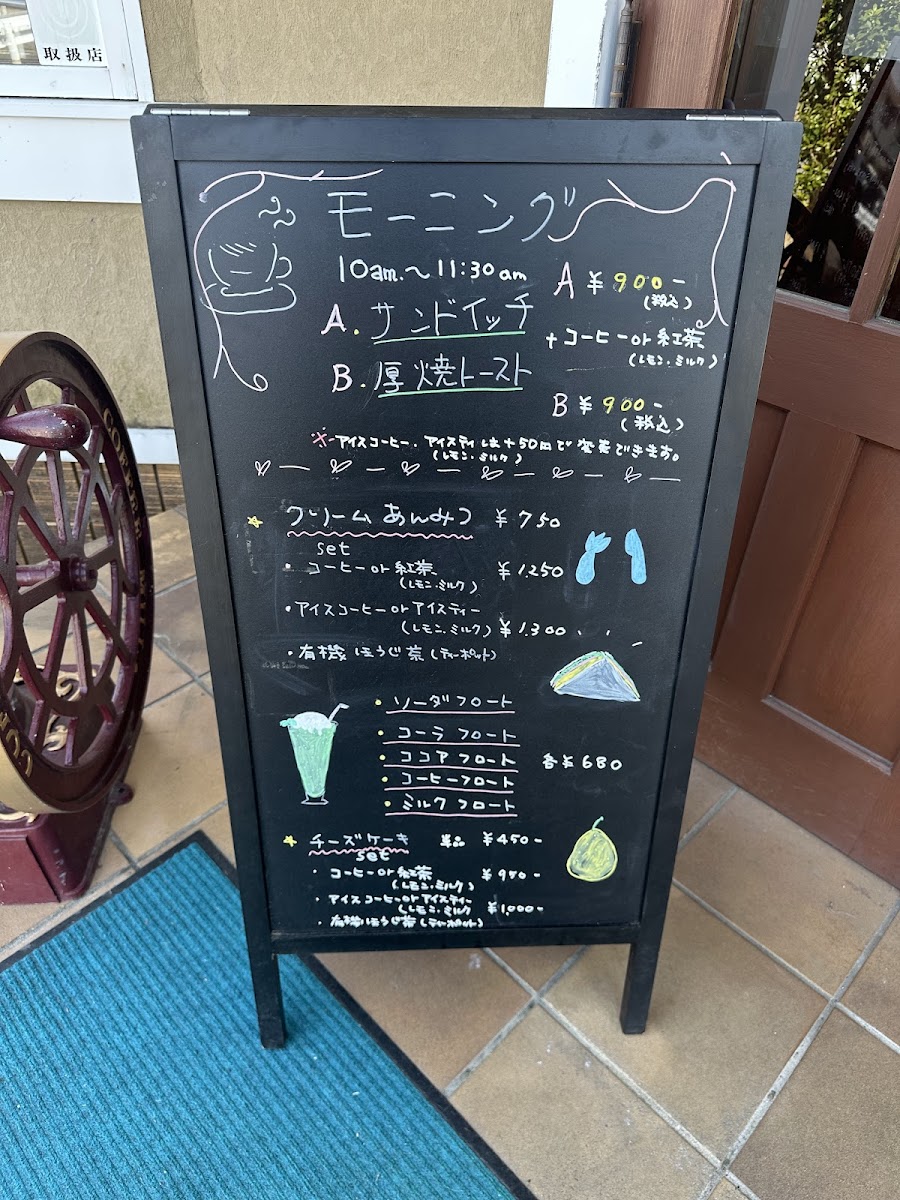 取扱店
モーニング
10am.〜11:30am
A ¥900-
(税込)
A. サンドイッチ
+コーヒーor紅茶
(レモン・ミルク)
B. 厚焼トースト
B ¥900-
(税込)
※アイスコーヒー、アイスティは+50円で変更できます。
(レモン・ミルク)
クリームあんみつ ¥750
set
・コーヒーor紅茶 ¥1.250
(レモン・ミルク)
・アイスコーヒーorアイスティー
(レモン・ミルク) ¥1.300
・有機ほうじ茶(ティーポット)
・ソーダフロート
・コーラフロート
・ココアフロート 各¥680
・コーヒーフロート
・ミルクフロート
チーズケーキ 単品 ¥450-
set
・コーヒーor紅茶 ¥950-
(レモン・ミルク)
・アイスコーヒーorアイスティー
(レモン・ミルク ¥1,000-
・有機ほうじ茶(ティーポット)